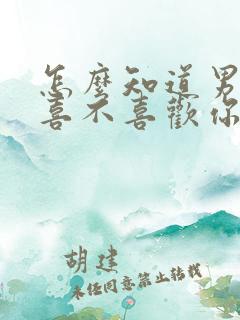 怎麼知道男
喜不喜歡你
胡建
未经同意禁止转载